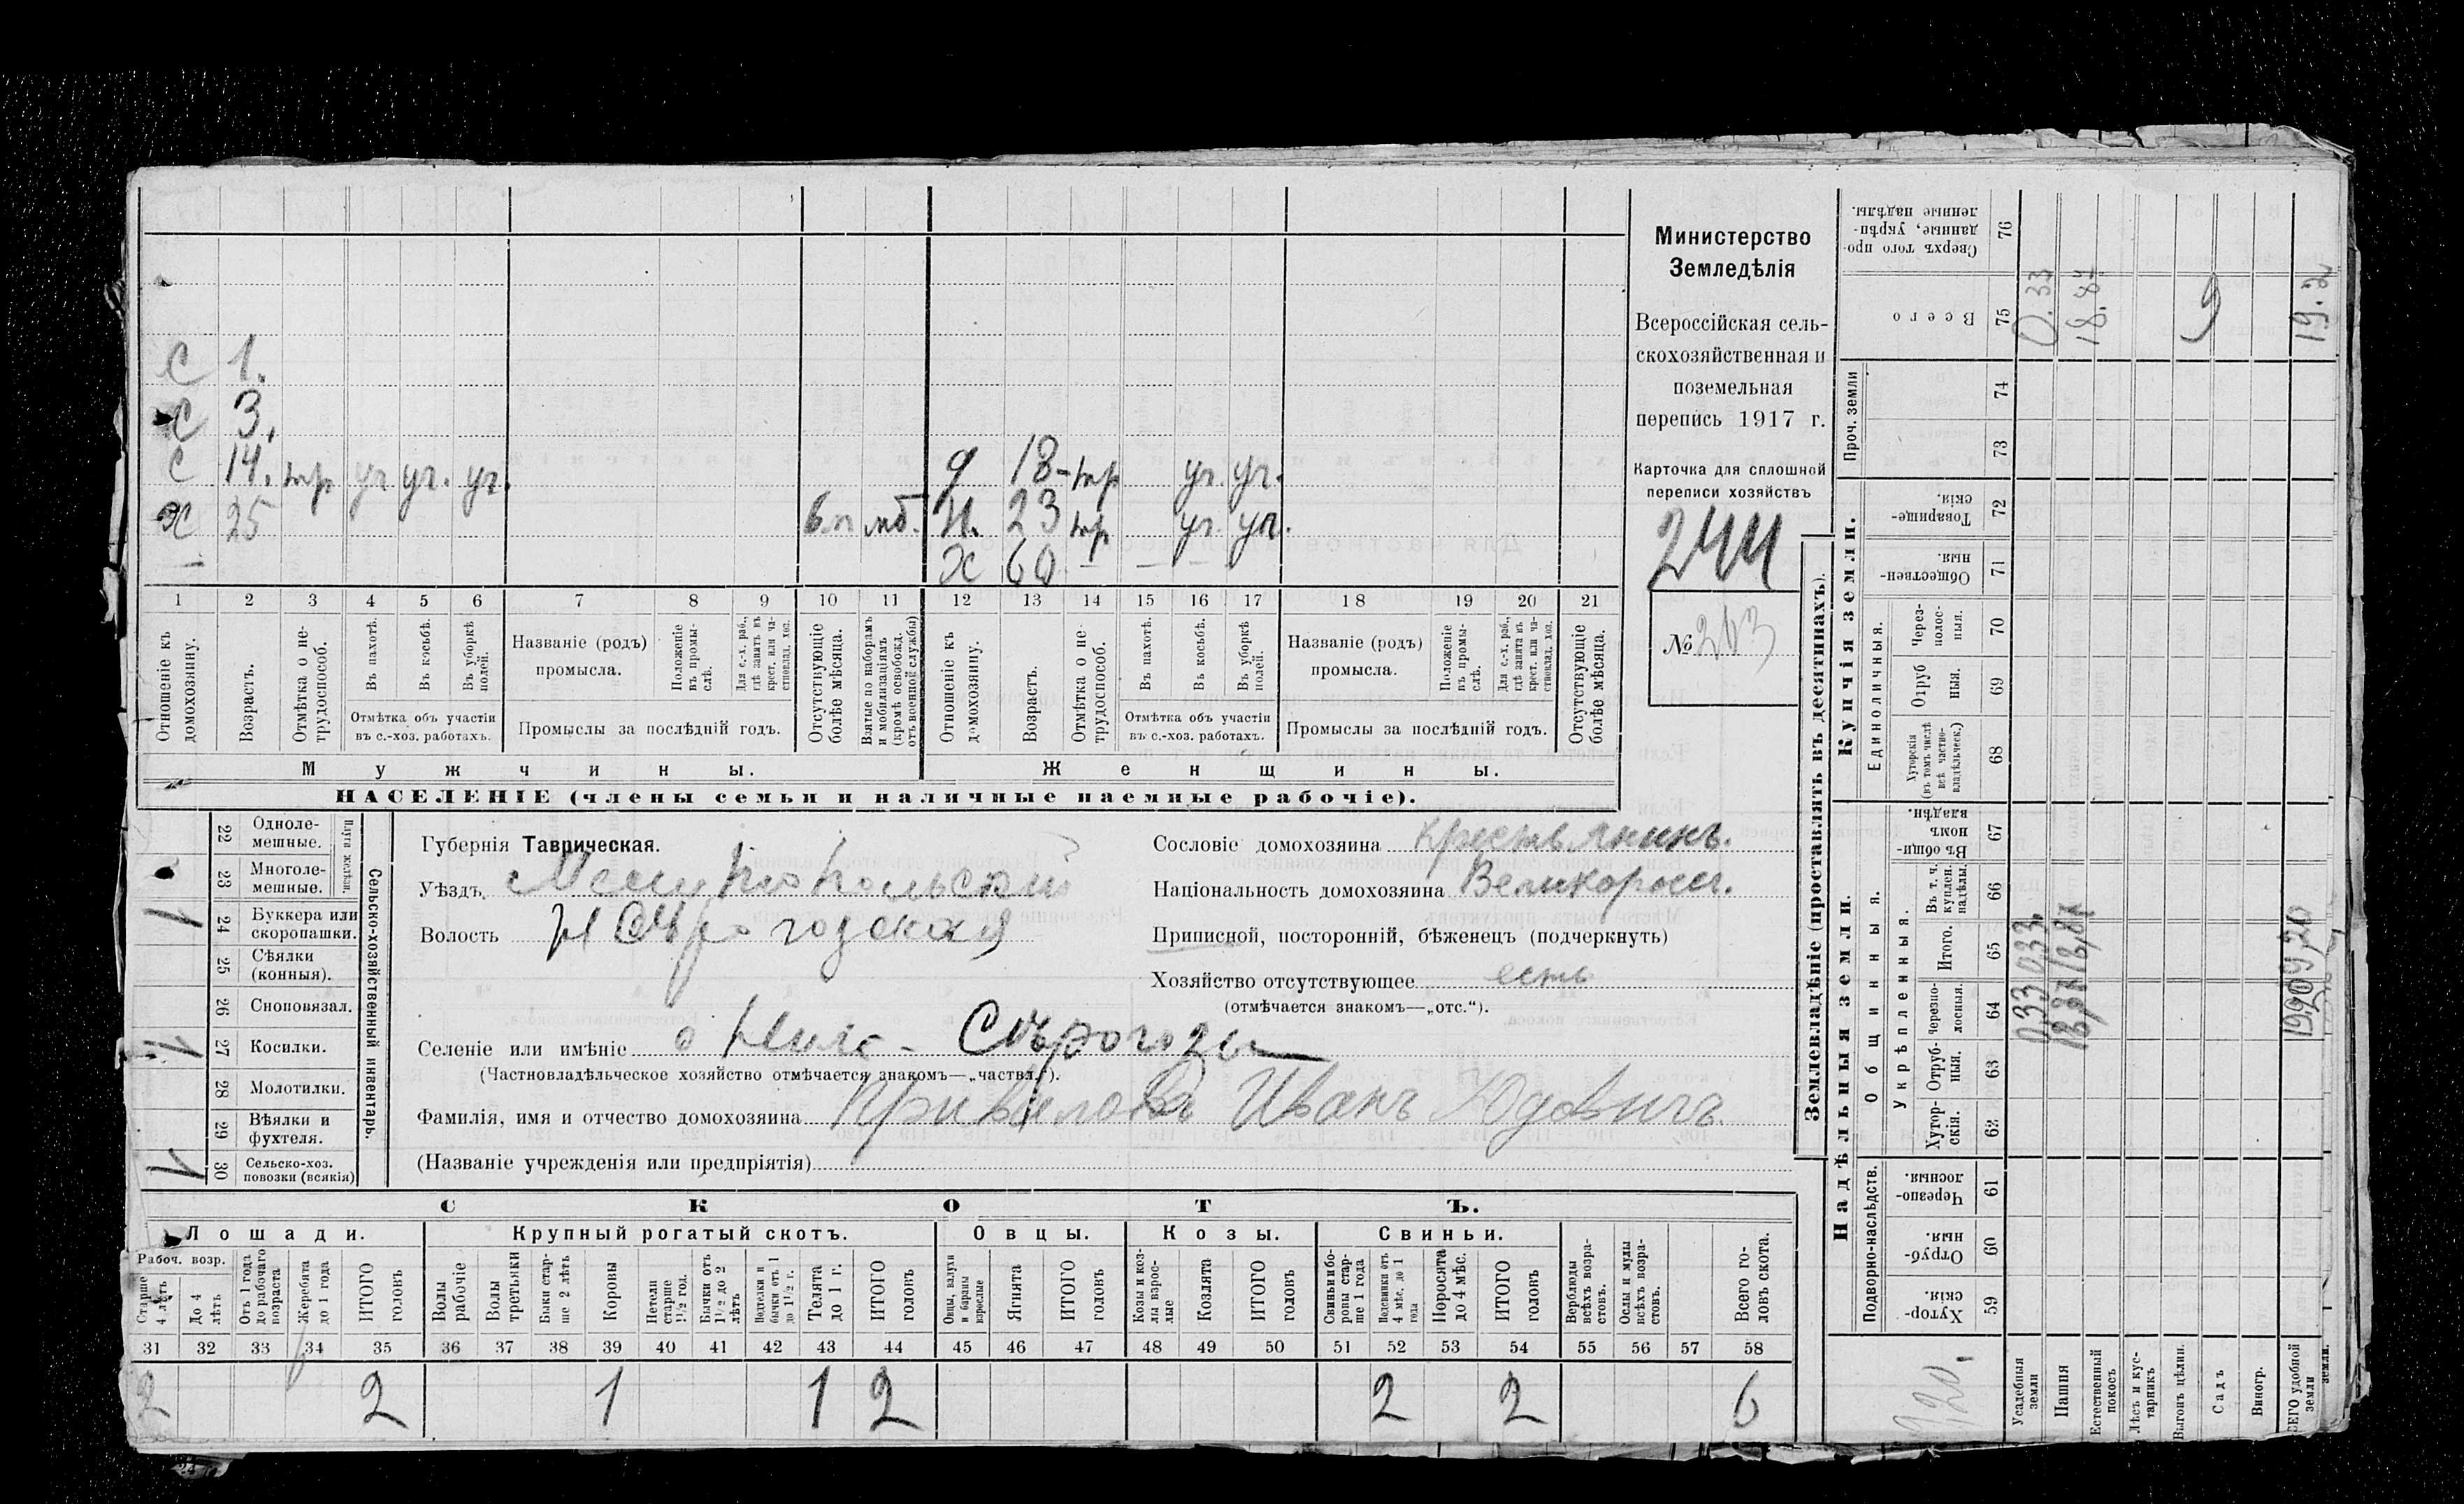 С 1.
С 3.
С 14. тр уч уч. уч. д 18 - тр уч. уч.
Х 25 мб. Н. 23 тр уч. уч.
— Х 60 — — —
1 2 3 4 5 6 7 8 9 10 11 12 13 14 15 16 17 18 19 20 21
Отношеніе къ домохозяину.
Возрастъ.
Отмѣтка о нетрудоспособ.
Въ пахотѣ.
Въ косьбѣ.
Въ уборкѣ полей.
Отмѣтка объ участіи
въ с.-хоз. работахъ.
Названіе (родъ)
промысла.
Положеніе въ промыслѣ.
Для с.-х. раб., гдѣ занятъ въ крест. или частновлад. хоз.
Промыслы за послѣдній годъ.
Отсутствующіе болѣе мѣсяца.
Взятые по наборамъ и мобилизаціямъ (кромѣ освобожд. отъ военной службы)
Отношеніе къ домохозяину.
Возрастъ.
Отмѣтка о нетрудоспособ.
Въ пахотѣ.
Въ косьбѣ.
Въ уборкѣ полей.
Отмѣтка объ участіи
въ с.-хоз. работахъ.
Названіе (родъ)
промысла.
Положеніе въ промыслѣ.
Для с.-х. раб., гдѣ занятъ въ крест. или частновлад. хоз.
Промыслы за послѣдній годъ.
Отсутствующіе болѣе мѣсяца.
Мужчины.
Женщины.
НАСЕЛЕНІЕ (члены семьи и наличные наемные рабочіе).
Министерство
Земледѣлія
Всероссійская сель-
скохозяйственная и
поземельная
перепись 1917 г.
Карточка для сплошной
переписи хозяйствъ
244
№ 203
22 Одноле-
мешные.
23 Многоле-
мешные.
Плуги желѣзн.
24 Буккера или
скоропашки.
25 Сѣялки
(конныя).
26 Сноповязал.
27 Косилки.
28 Молотилки.
29 Вѣялки и
фухтеля.
30 Сельско-хоз.
повозки (всякія)
Сельско-хозяйственный инвентарь.
1
1
1
Губернія Таврическая.
Уѣздъ Мелитопольскій
Волость Н Сѣрогозская
Селеніе или имѣніе с Нижс - Сѣрогозы
(Частновладѣльческое хозяйство отмѣчается знакомъ—„частвл.“).
Фамилія, имя и отчество домохозяина Привиловъ Иванъ Юдовичъ
(Названіе учрежденія или предпріятія)
Сословіе домохозяина крестьянинъ.
Національность домохозяина Великоросс.
Приписной, посторонній, бѣженецъ (подчеркнуть)
Хозяйство отсутствующее есть
(отмѣчается знакомъ—„отс.“).
СКОТЪ.
Лошади. Крупный рогатый скотъ. Овцы. Козы. Свиньи.
Рабоч. возр.
Старше 4 лѣтъ
До 4 лѣтъ
Отъ 1 года до рабочаго возраста
Жеребята до 1 года
ИТОГО головъ
Волы рабочіе
Волы третьяки
Быки старше 2 лѣтъ
Коровы
Нетели старше 1½ год.
Бычки отъ 1½ до 2 лѣтъ
Подтелки и бычки отъ 1 до 1½ г.
Телята до 1 г.
ИТОГО головъ
Овцы, валухи и бараны взрослые
Ягнята
ИТОГО головъ
Козы и козлы взрослые
Козлята
ИТОГО головъ
Свиньи и боровы старше 1 года
Подсвинки отъ 4 мѣс. до 1 года
Поросята до 4 мѣс.
ИТОГО головъ
Верблюды всѣхъ возрастовъ.
Ослы и мулы всѣхъ возрастовъ.
Всего головъ скота.
31 32 33 34 35 36 37 38 39 40 41 42 43 44 45 46 47 48 49 50 51 52 53 54 55 56 57 58
2 2 1 1 2 2 2 6
Землевладѣніе (проставлять въ десятинахъ).
Надѣльныя земли.
Купчія земли.
Проч. земли
Подворно-наслѣдств.
Общинныя.
Укрѣпленныя.
Единоличныя.
Хуторскія. 59
Отрубныя. 60
Черезполосныя. 61
Хуторскія. 62
Отрубныя. 63
Черезполосныя. 64
Итого. 65
Въ т. ч. куплен. надѣлы. 66
Въ общинномъ владѣн. 67
Хуторскія (въ томъ числѣ всѣ частновладѣльческ.) 68
Отрубныя. 69
Черезполосныя. 70
Общественныя. 71
Товарищескія. 72
73
74
Всего 75
Сверхъ того проданные, укрѣпленные надѣлы. 76
Усадебныя земли 0,33 0,33. 0.33
Пашня 18,87 18,87 18.87
Естественный покосъ
Лѣсъ и кустарникъ
Выгонъ цѣлин.
Садъ
Виногр.
ВСЕГО удобной земли